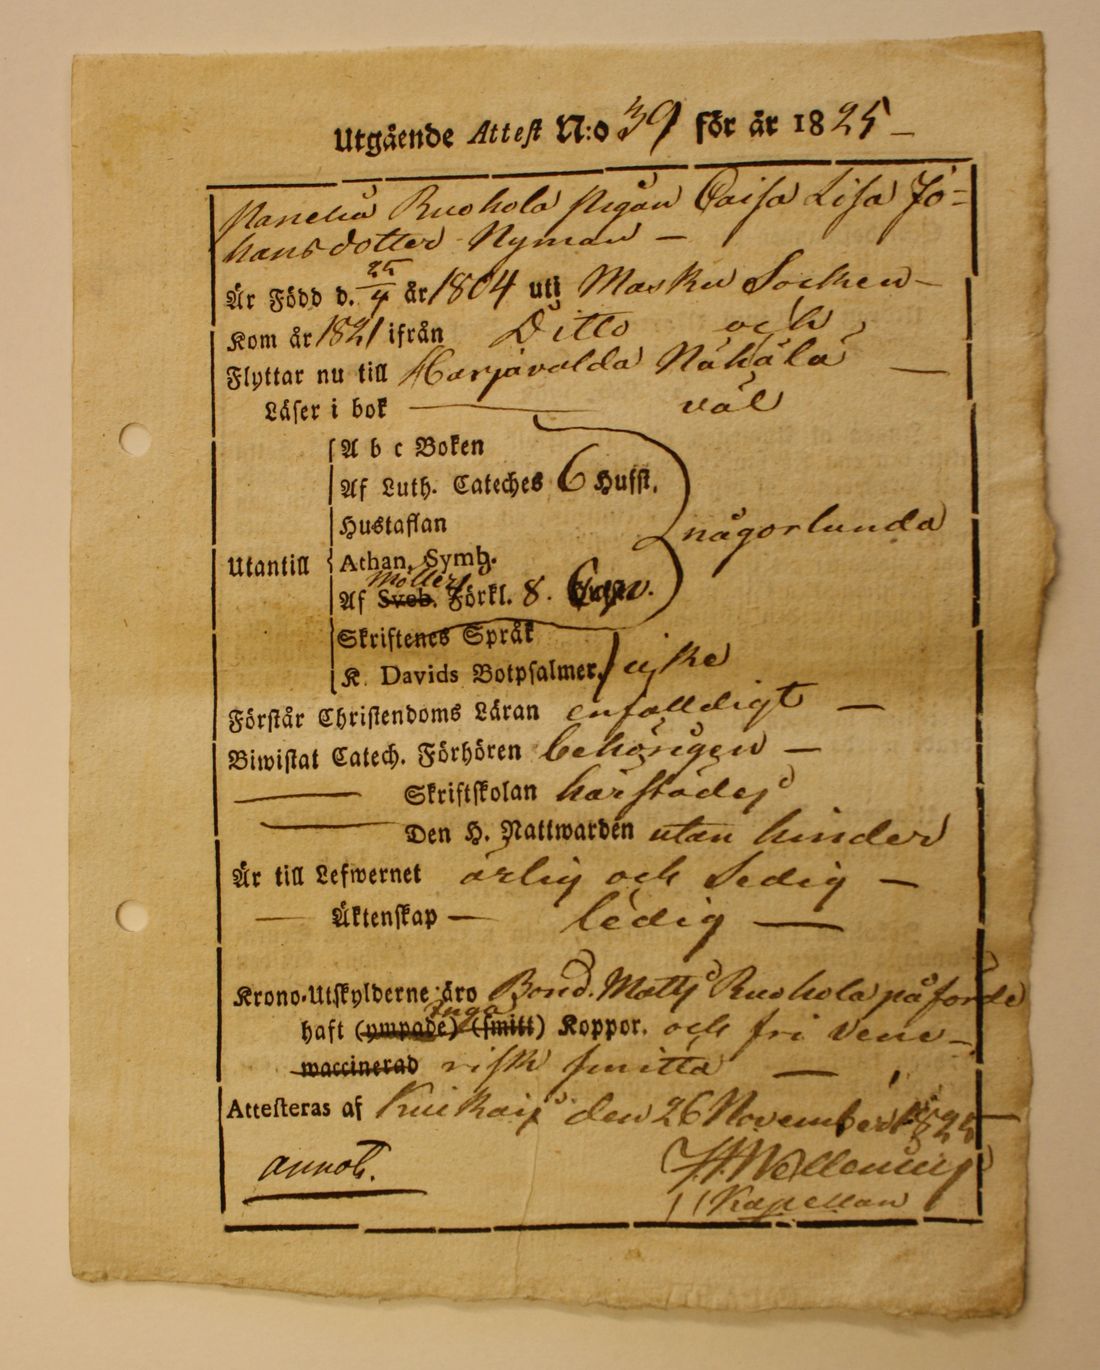 Utgående Attest N:o 39 för år 1825 –
Ruohola pigan Caisa Lisa Jo=
hansdotter Nyman –
Är Född d. 25/4 år 1804 uti Masku Socken –
Kom år 1821 ifrån Ditto och
Flyttar nu till Harjavalda Näkälä –
Läser i bok – väl
A b c Boken
Af Luth. Cateches 6 Hufst.
Hustaflan
någorlunda
Utantill
Athan. Symb.
Möllers
Af Sveb. Förkl. 8. Cap.
Skriftenes Språk
K. Davids Botpsalmer. icke
Förstår Christendoms Läran enfalldigt –
Biwistat Catech. Förhören behörigen –
— Skriftskolan härstädes
— Den H. Nattwarden utan hinder
Är till Lefwernet ärlig och Sedig –
— Äktenskap — ledig —
Krono-Utskylderne äro Bond. Matts Ruohola påförde
Inga
haft (ympade) (smitt) Koppor. och fri vene-
waccinerad risk smitta —
Attesteras af den 26 November 1825
annot.
Kapellan